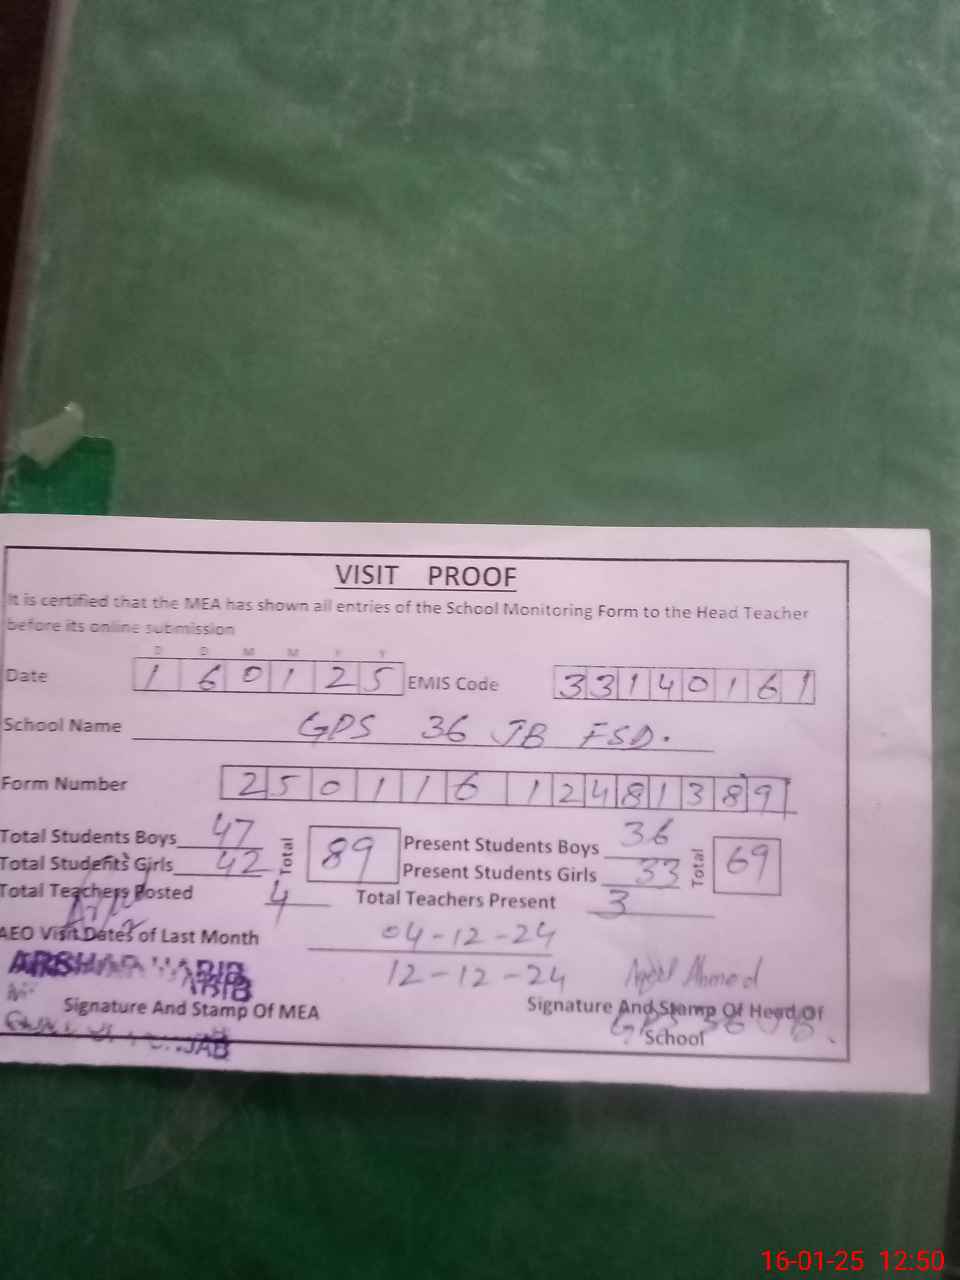 VISIT PROOF
It is certified that the MEA has shown all entries of the School Monitoring Form to the Head Teacher
before its online submission
D D M M Y Y
Date 1 6 0 1 2 5 EMIS Code 3 3 1 4 0 1 6 1
School Name GPS 36 JB FSD.
Form Number 2 5 0 1 1 6 1 2 4 8 1 3 8 9
Total Students Boys 47 Total 89 Present Students Boys 36 Total 69
Total Students Girls 42 Present Students Girls 33
Total Teachers Posted 4 Total Teachers Present 3
AEO Visit Dates of Last Month 04-12-24
12-12-24 Ahmed
Signature And Stamp Of MEA Signature And Stamp Of Head Of
School
GPS 36 JB.
16-01-25 12:50